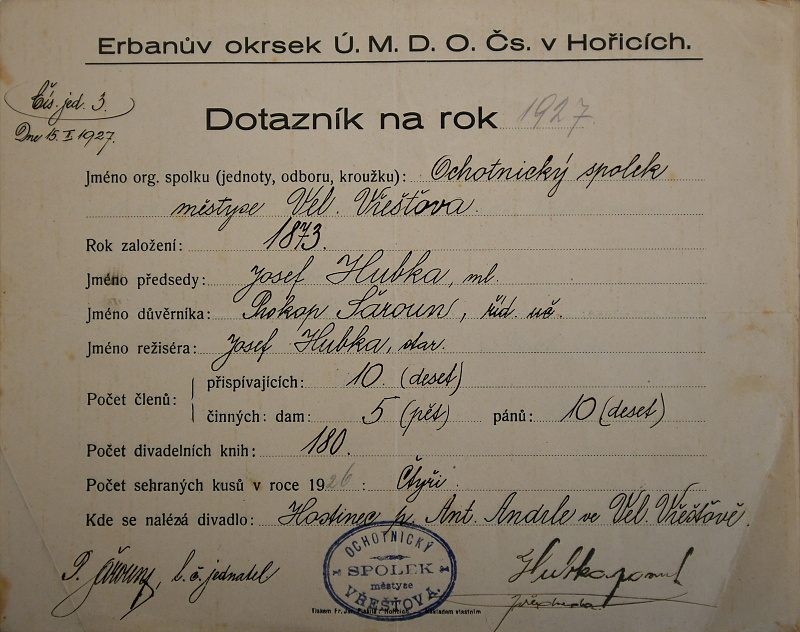 Erbanův okrsek Ú. M. D. O. Čs. v Hořicích.
Čís. jed. 3.
Dne 15. I. 1927.
Dotazník na rok 1927
Jméno org. spolku (jednoty, odboru, kroužku): Ochotnický spolek
městyse Vel. Vřešťova.
Rok založení: 1873.
Jméno předsedy: Josef Hubka, ml.
Jméno důvěrníka: Prokop Šároun, říd. uč.
Jméno režiséra: Josef Hubka, star.
Počet členů: přispívajících: 10. (deset)
činných: dam: 5 (pět) pánů: 10 (deset)
Počet divadelních knih: 180.
Počet sehraných kusů v roce 1926: Čtyři.
Kde se nalézá divadlo: Hostinec p. Ant. Andrle ve Vel. Vřešťově.
P. Šároun, t. č. jednatel
OCHOTNICKÝ
SPOLEK
městyse
VŘEŠŤOVA.
Hubka
předseda
Tiskem Fr. Hořicích. Nákladem vlastním